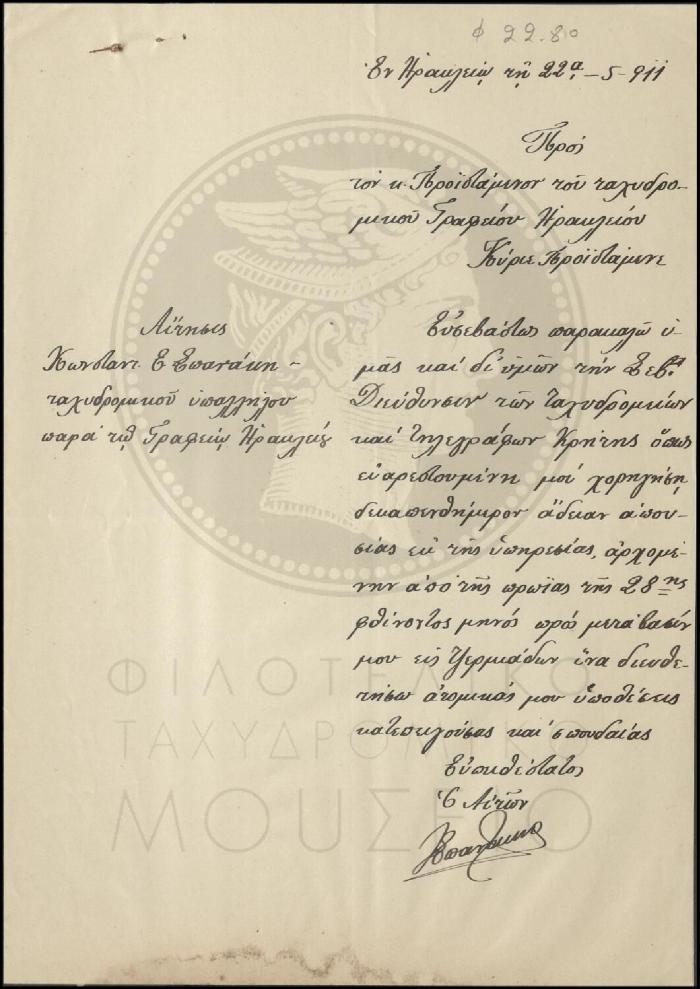 φ 22.80
Ἐν Ἡρακλείῳ τῇ 22ᾳ -5-911
Πρὸς
τὸν κ. Προϊστάμενον τοῦ ταχυδρο-
μικοῦ Γραφείου Ἡρακλείου
Κύριε Προϊστάμενε
Αἴτησις
Κωνσταντ. Ε. Σπανάκη -
ταχυδρομικοῦ ὑπαλλήλου
παρὰ τῷ Γραφείῳ Ἡρακλείου
Εὐσεβάστως παρακαλῶ ὑ-
μᾶς καὶ δι' ὑμῶν τὴν Σεβ.
Διεύθυνσιν τῶν Ταχυδρομείων
καὶ Τηλεγράφων Κρήτης ὅπως
εὐαρεστουμένη μοί χορηγήσῃ
δεκαπενθήμερον ἄδειαν ἀπου-
σίας ἐκ τῆς ὑπηρεσίας, ἀρχομέ-
νην ἀπὸ τῆς πρωΐας τῆς 28ης
φθίνοντος μηνός πρὸ μετάβασίν
μου εἰς Τζερμιάδων ἵνα διευθε-
τήσω ἀτομικάς μου ὑποθέσεις
κατεπειγούσας καὶ σπουδαίας
Εὐπειθέστατος
Ὁ Αἰτῶν
ΚΕΣπανάκης
ΦΙΛΟΤΕΛΙΚΟ
ΤΑΧΥΔΡΟΜΙΚΟ
ΜΟΥΣΕΙΟ